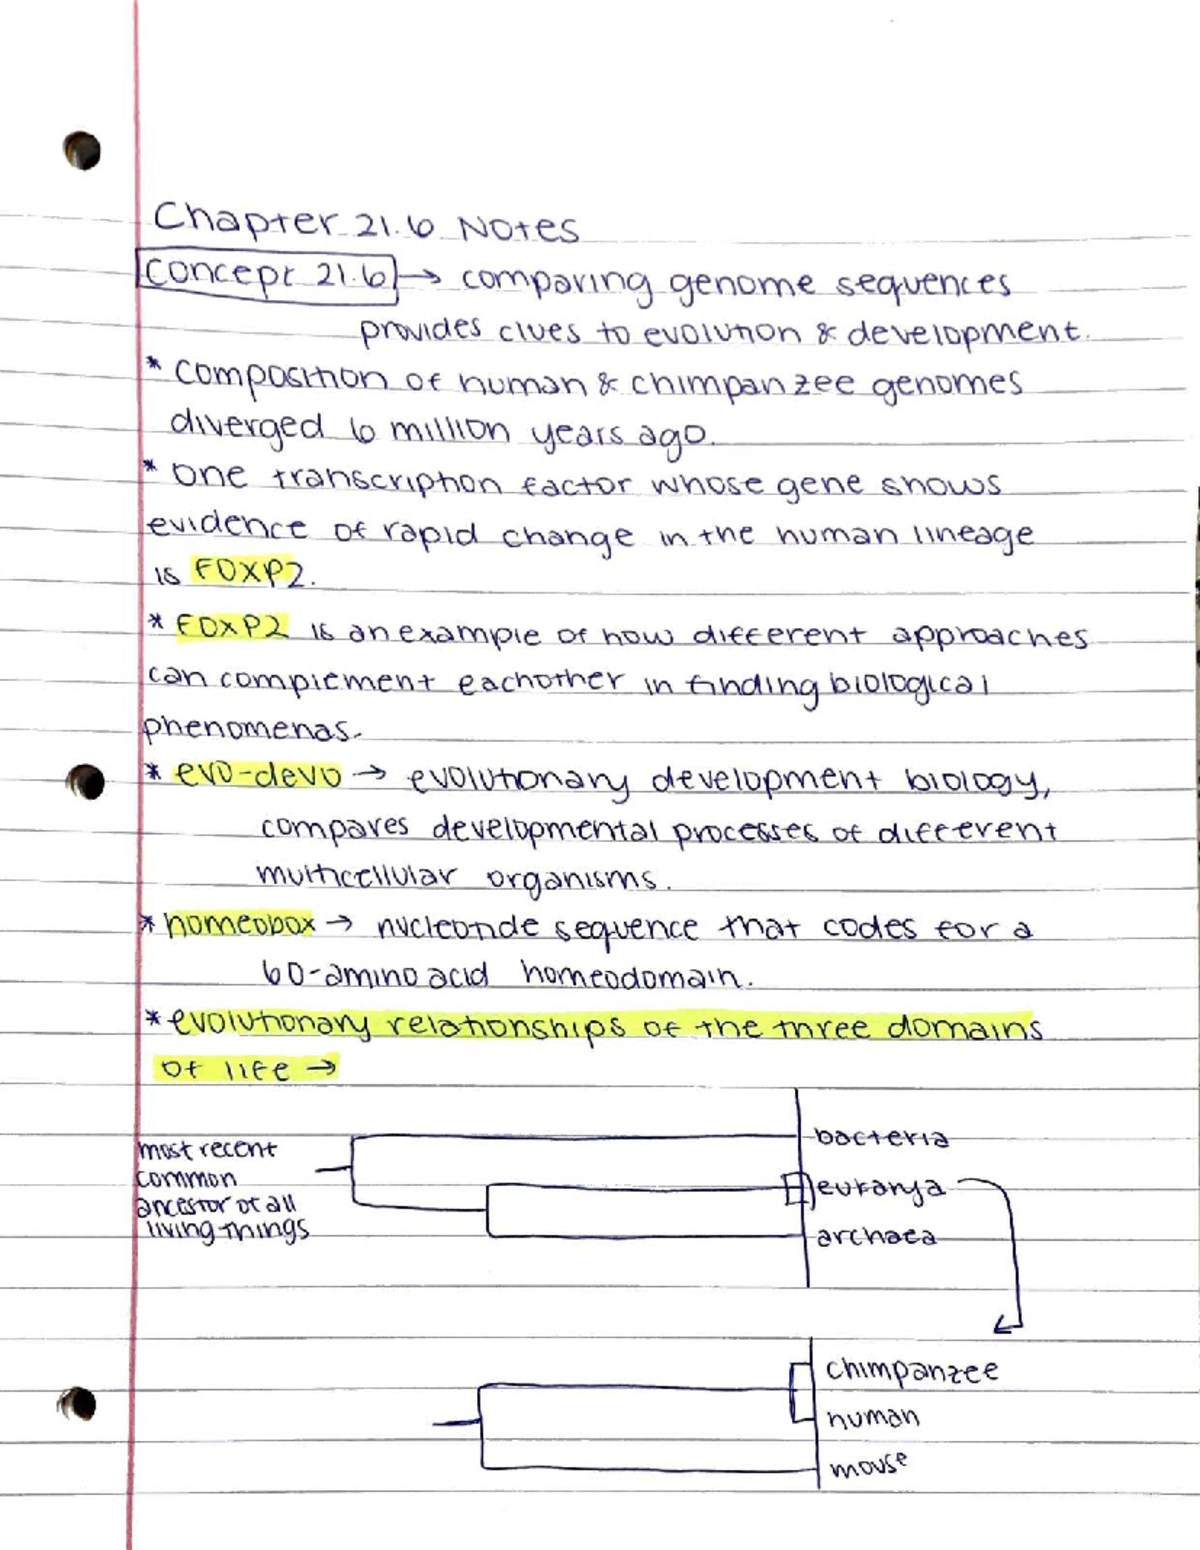 Chapter 21.6 Notes
Concept 21.6 → comparing genome sequences
provides clues to evolution & development.
* composition of human & chimpanzee genomes
diverged 6 million years ago.
* one transcription factor whose gene shows
evidence of rapid change in the human lineage
is FOXP2.
* FOXP2 is an example of how different approaches
can complement eachother in finding biological
phenomenas.
* evo-devo → evolutionary development biology,
compares developmental processes of different
multicellular organisms.
* homeobox → nucleotide sequence that codes for a
60-amino acid homeodomain.
* evolutionary relationships of the three domains
of life →
most recent
common
ancestor of all
living things
bacteria
eukarya
archaea
chimpanzee
human
mouse